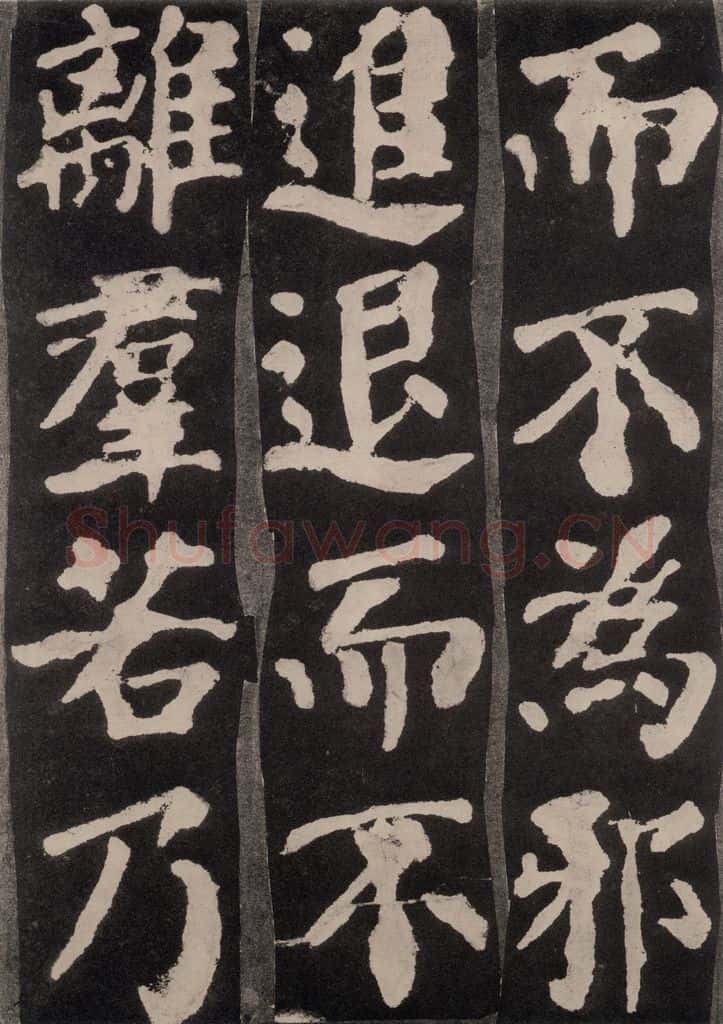 而不為邪
進退而不
離羣若乃
Shufawang.CN